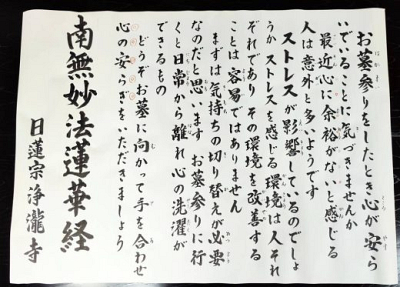 お墓参りをしたとき心が安ら
いでいることに気づきませんか
最近心に余裕がないと感じる
人は意外と多いようです
ストレスが影響しているのでしょ
うか ストレスを感じる環境は人それ
ぞれであり その環境を改善する
ことは容易ではありません
まずは気持ちの切り替えが必要
なのだと思います お墓参りに行
くと日常から離れ心の洗濯が
できるもの
どうぞお墓に向かって手を合わせ
心の安らぎをいただきましょう
南無妙法蓮華経
日蓮宗 浄瀧寺